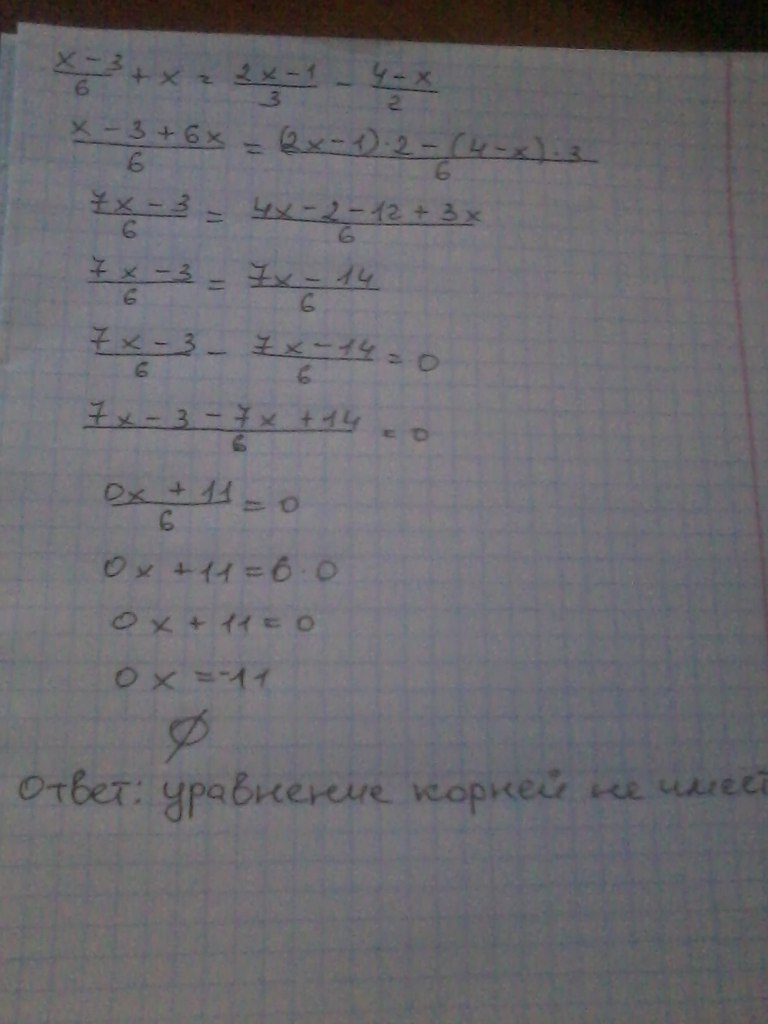 (x-3)/6 + x = (2x-1)/3 - (4-x)/2
(x-3+6x)/6 = ((2x-1)·2-(4-x)·3)/6
(7x-3)/6 = (4x-2-12+3x)/6
(7x-3)/6 = (7x-14)/6
(7x-3)/6 - (7x-14)/6 = 0
(7x-3-7x+14)/6 = 0
(0x+11)/6 = 0
0x+11=6·0
0x+11=0
0x=-11
∅
Ответ: уравнение корней не имеет